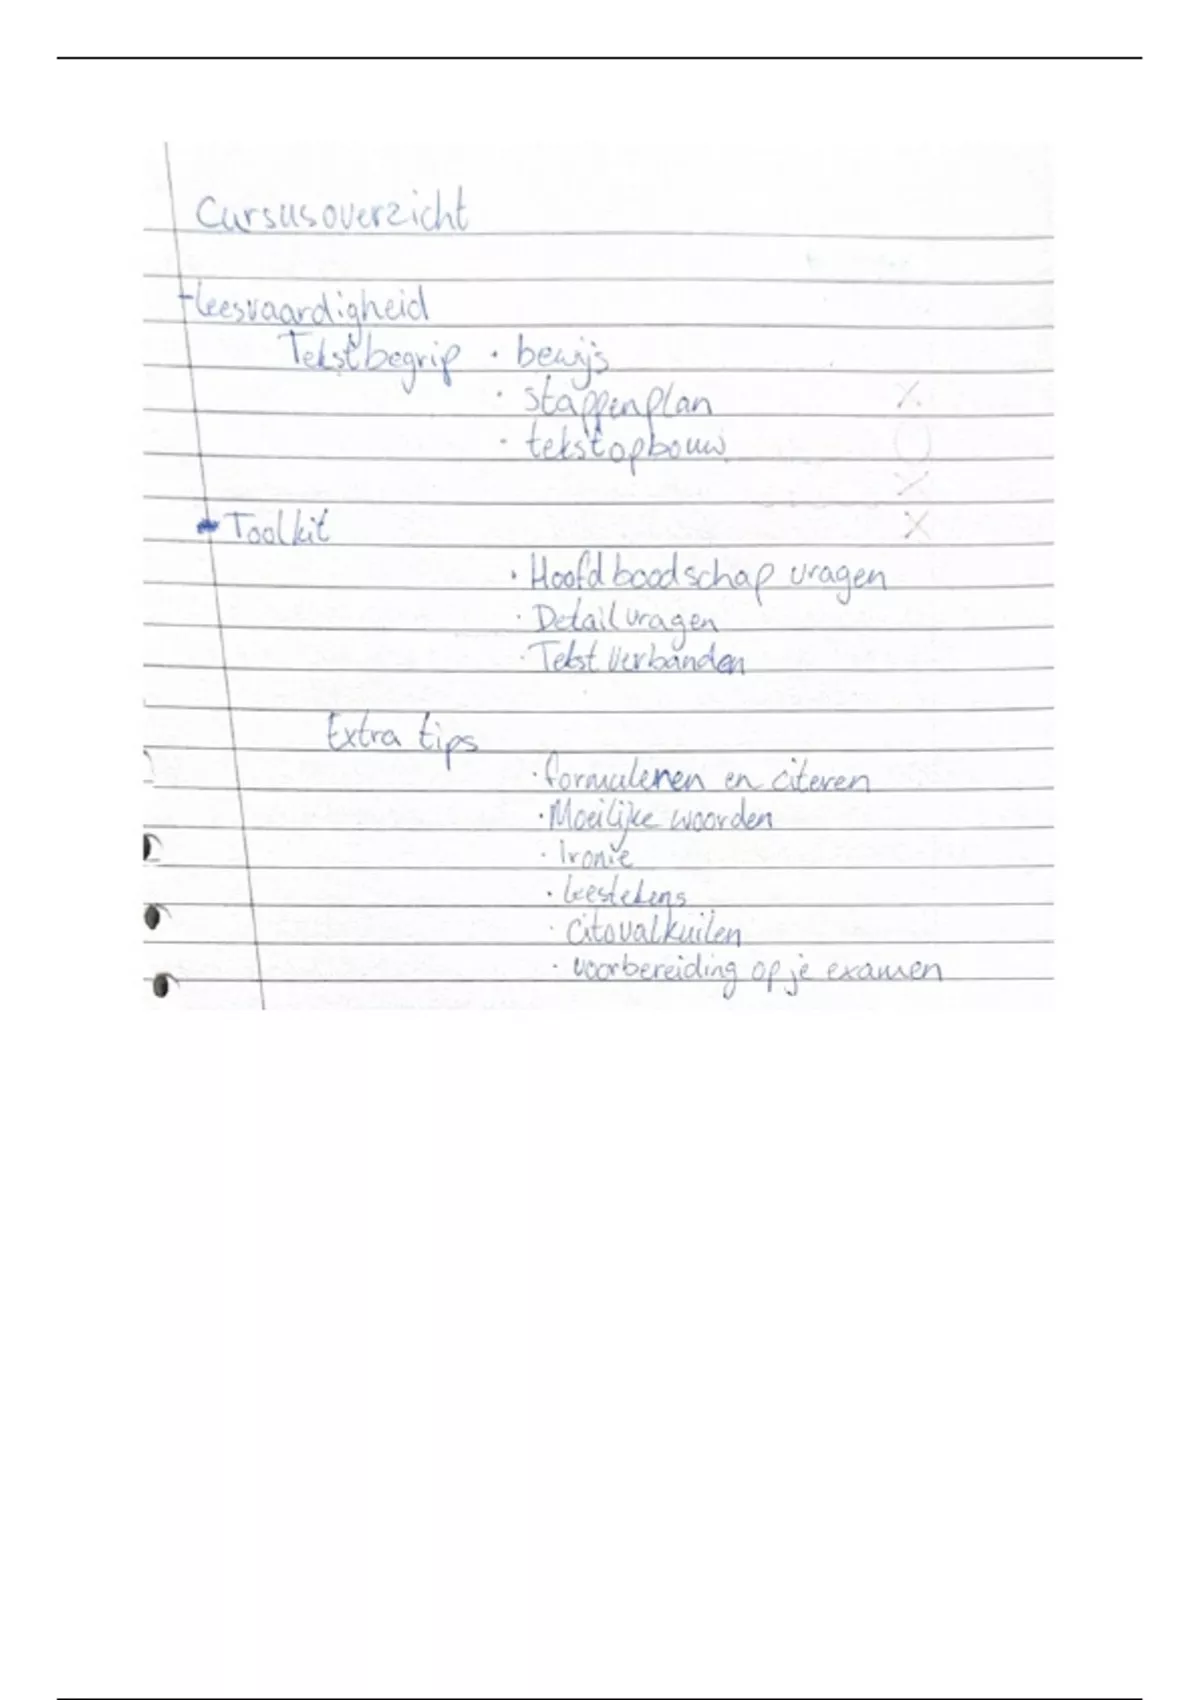 Cursusoverzicht
- Leesvaardigheid
Tekstbegrip · bewijs
· stappenplan
· tekstopbouw
- Toolkit
· Hoofdboodschap vragen
· Detailvragen
· Tekstverbanden
Extra tips
· formuleren en citeren
· Moeilijke woorden
· Ironie
· leestekens
· Citovalkuilen
· voorbereiding op je examen